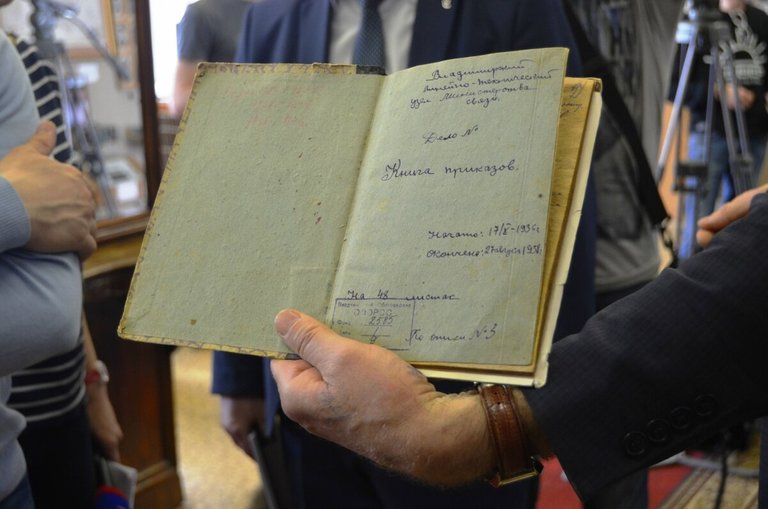 Владимирский
линейно-технический
узел Министерства
связи.
Дело №
Книга приказов.
Начато: 17/X-1936г
Окончено: 27 августа 1938г.
На 48 листах
2585
По описи № 3